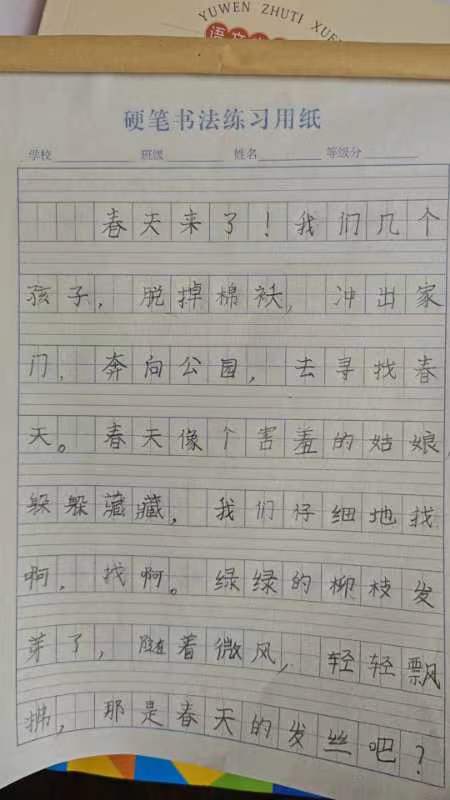 YUWEN ZHUTI XUE
硬笔书法练习用纸
学校 班级 姓名 等级分
春天来了！我们几个
孩子，脱掉棉袄，冲出家
门，奔向公园，去寻找春
天。春天像个害羞的姑娘，
躲躲藏藏，我们仔细地找
啊，找啊。绿绿的柳枝发
芽了，随着微风，轻轻飘
拂，那是春天的发丝吧？